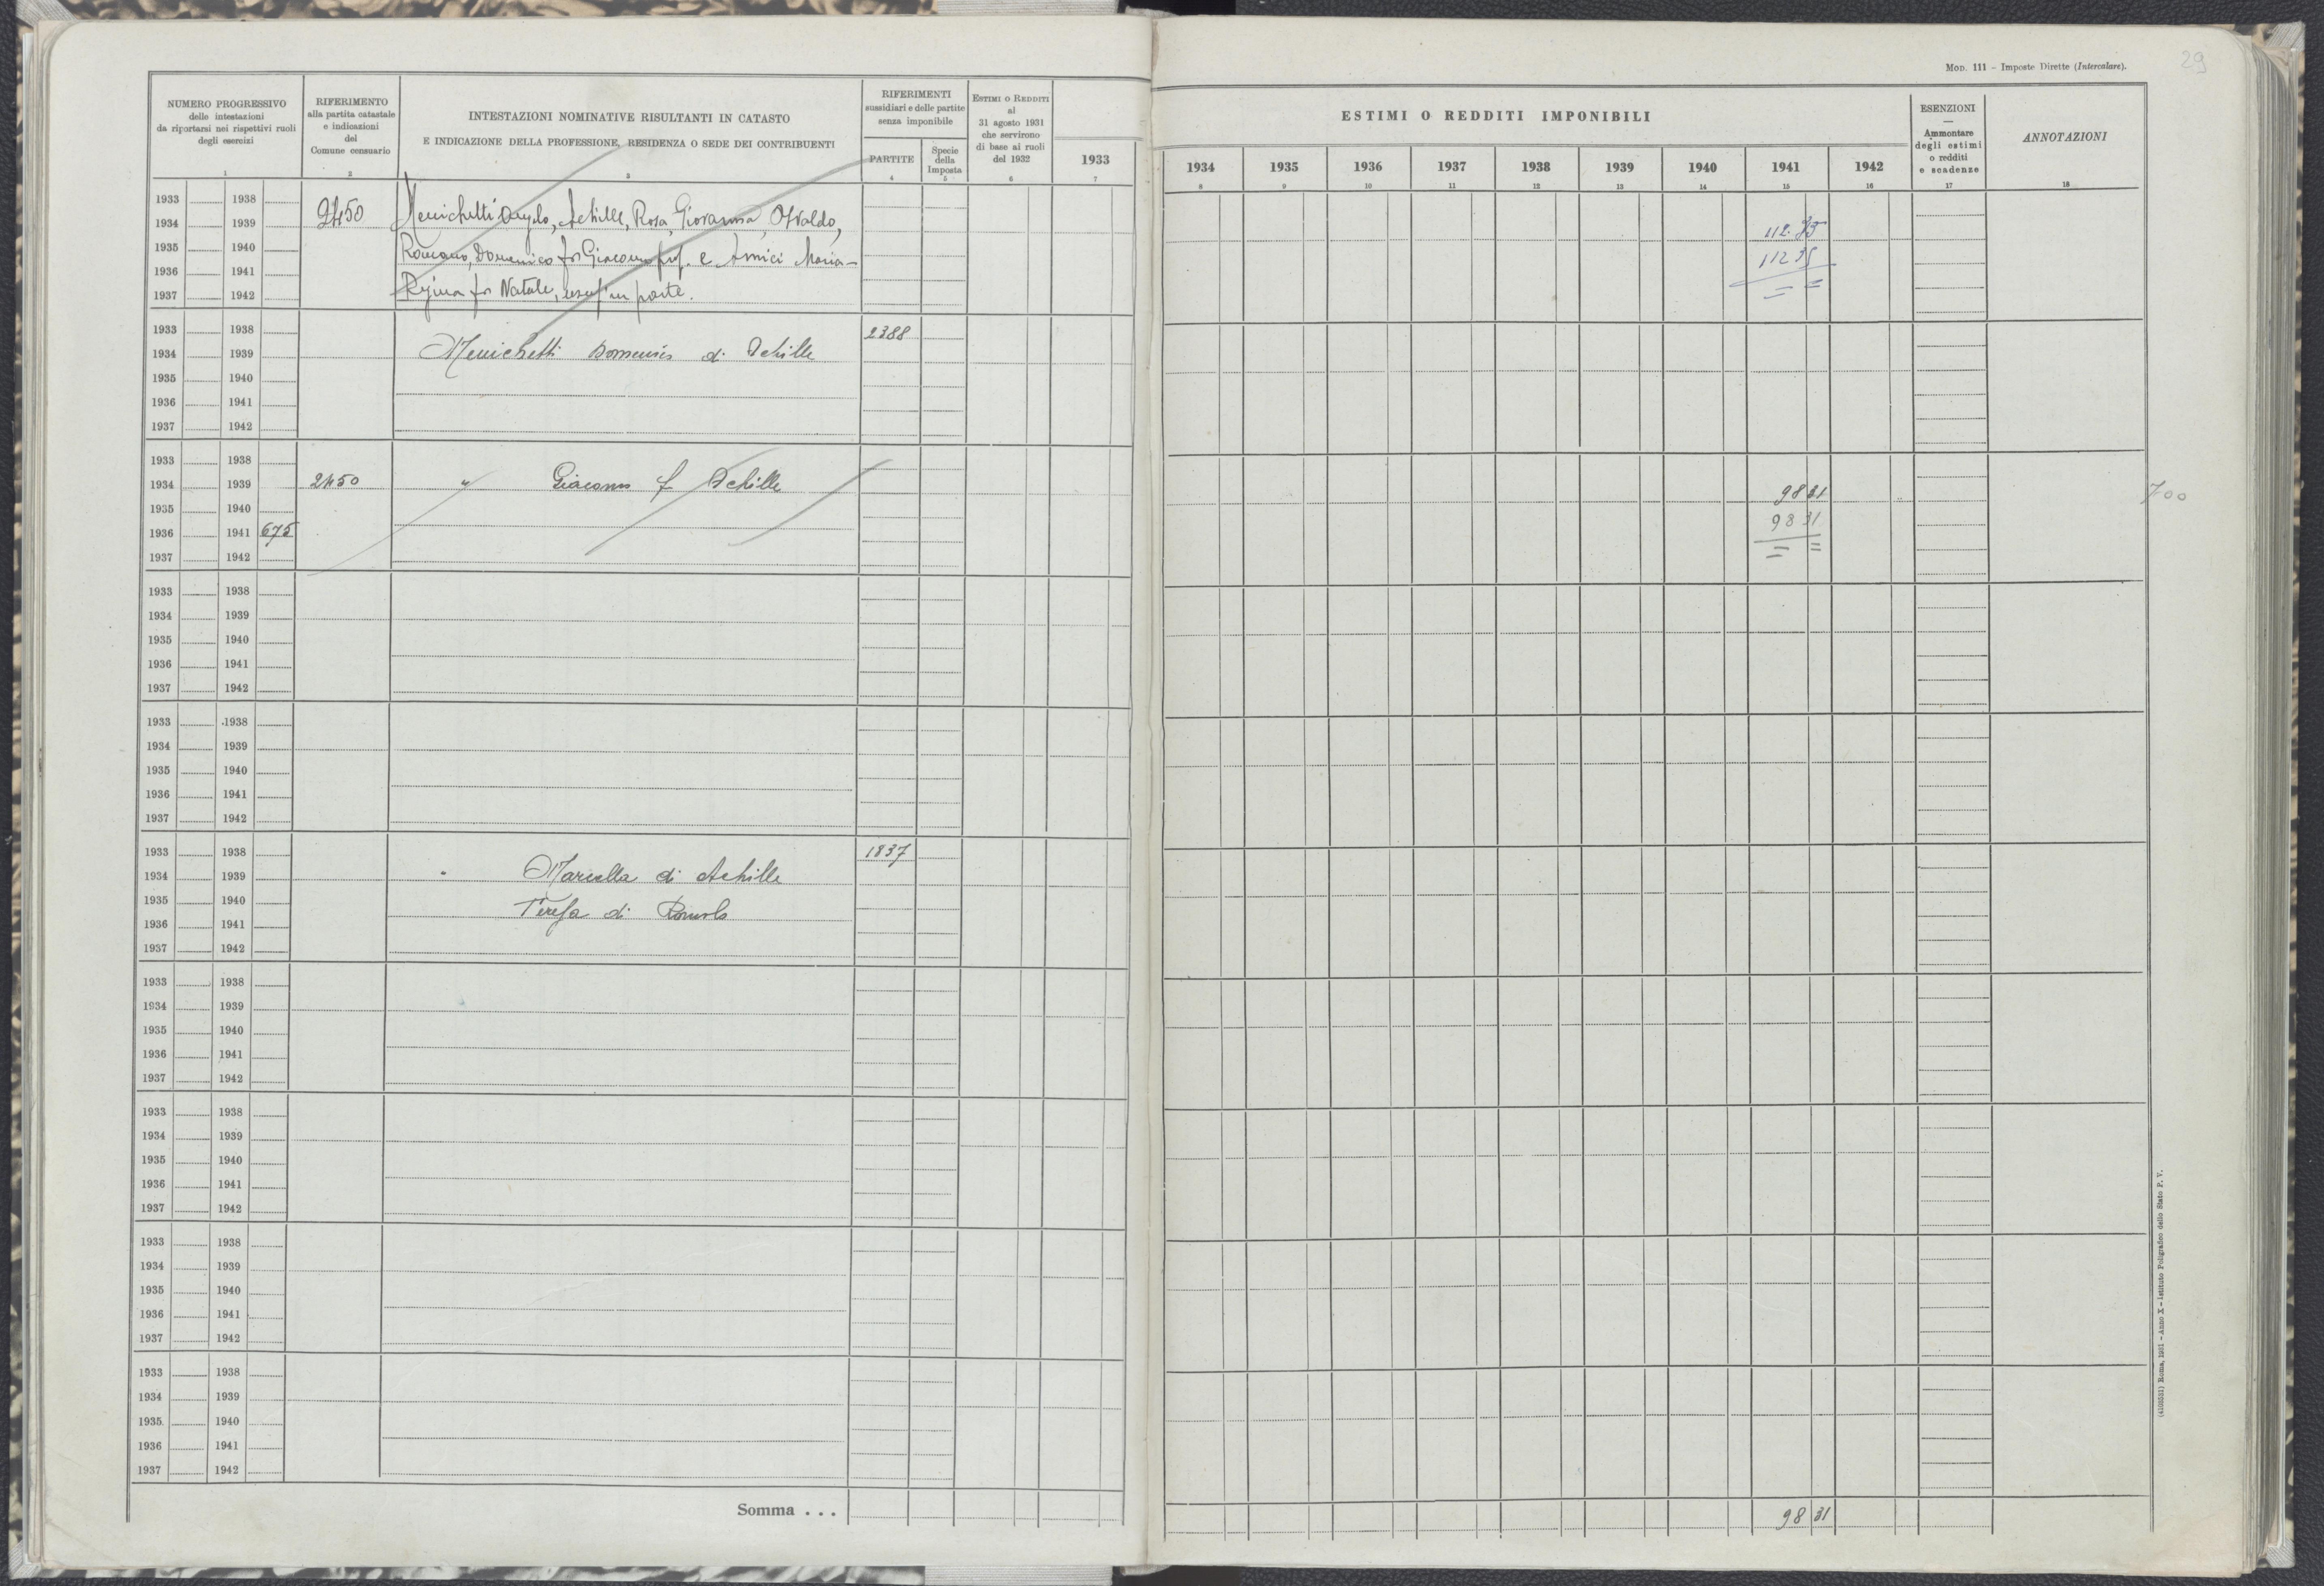 MOD. 111 – Imposte Dirette (Intercalare).
29
NUMERO PROGRESSIVO
delle intestazioni
da riportarsi nei rispettivi ruoli
degli esercizi
1
RIFERIMENTO
alla partita catastale
e indicazioni
del
Comune censuario
2
INTESTAZIONI NOMINATIVE RISULTANTI IN CATASTO
E INDICAZIONE DELLA PROFESSIONE, RESIDENZA O SEDE DEI CONTRIBUENTI
3
RIFERIMENTI
sussidiari e delle partite
senza imponibile
PARTITE
4
Specie
della
Imposta
5
ESTIMI O REDDITI
al
31 agosto 1931
che servirono
di base ai ruoli
del 1932
6
1933
7
ESTIMI O REDDITI IMPONIBILI
1934 1935 1936 1937 1938 1939 1940 1941 1942
8 9 10 11 12 13 14 15 16
ESENZIONI
—
Ammontare
degli estimi
o redditi
e scadenze
17
ANNOTAZIONI
18
1933 1938
1934 1939 2450 Menichetti Angelo, Achille, Rosa, Giovanna, Osvaldo, 112.35
1935 1940 Romano, Domenico fu Giacomo prop. e Amici Maria- 112 35
1936 1941
1937 1942 Regina fu Natale, usuf. in parte. = =
1933 1938 2388
1934 1939 Menichetti Domenico di Achille
1935 1940
1936 1941
1937 1942
1933 1938
1934 1939 2450 " Giacomo f Achille 98 31 700
1935 1940 98 31
1936 1941 675 = =
1937 1942
1933 1938
1934 1939
1935 1940
1936 1941
1937 1942
1933 1938
1934 1939
1935 1940
1936 1941
1937 1942
1933 1938 1837
1934 1939 " Marcella di Achille
1935 1940 Teresa di Romolo
1936 1941
1937 1942
1933 1938
1934 1939
1935 1940
1936 1941
1937 1942
1933 1938
1934 1939
1935 1940
1936 1941
1937 1942
1933 1938
1934 1939
1935 1940
1936 1941
1937 1942
1933 1938
1934 1939
1935 1940
1936 1941
1937 1942
Somma . . . 98 31
(4103531) Roma, 1931 – Anno X – Istituto Poligrafico dello Stato P. V.